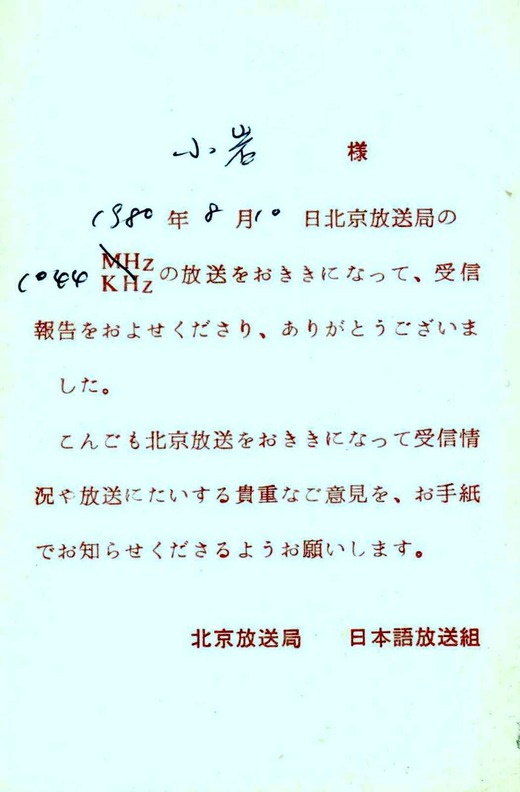 小岩 様
1980 年 8 月 10 日北京放送局の
MHz
1044 KHz の放送をおききになって、受信
報告をおよせくださり、ありがとうございま
した。
こんごも北京放送をおききになって受信情
況や放送にたいする貴重なご意見を、お手紙
でお知らせくださるようお願いします。
北京放送局 日本語放送組